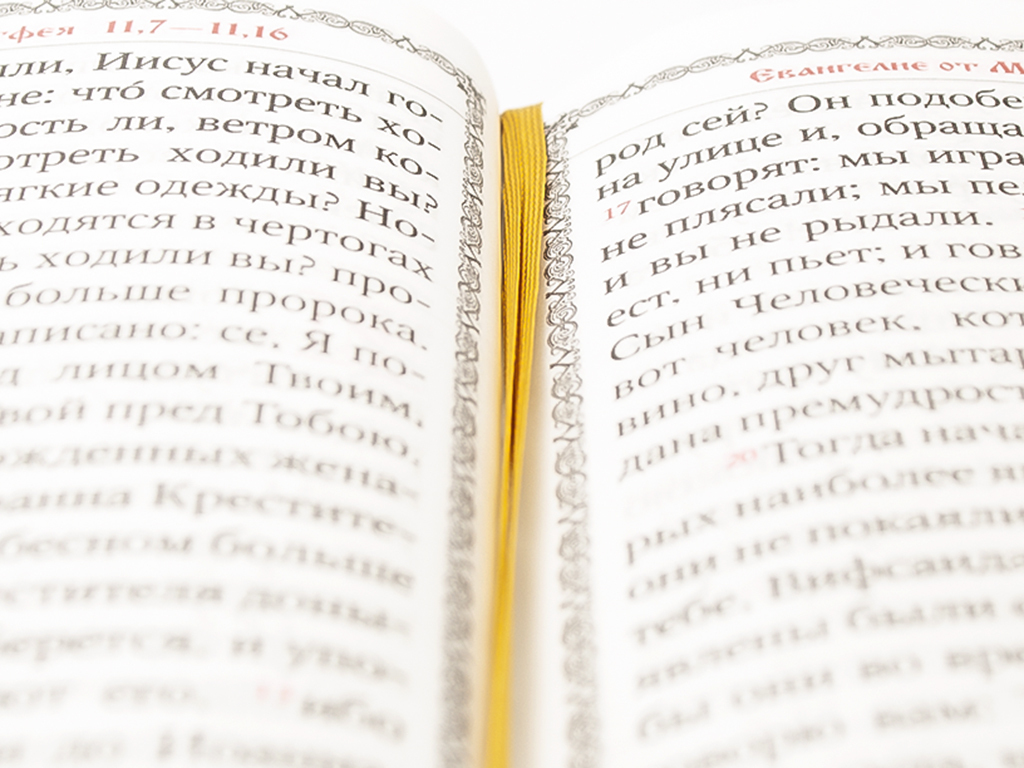 фея 11,7—11,16
ли, Иисус начал го-
не: что́ смотреть хо-
ость ли, ветром ко-
отреть ходили вы?
ягкие одежды? Но-
ходятся в чертогах
ь ходили вы? про-
больше пророка.
аписано: се, Я по-
д лицом Твоим,
вой пред Тобою.
ожденных жена-
оанна Крестите-
бесном больше
стителя доны-
берется, и упо-
ют его, 13 ибо
Евангелие от М
род сей? Он подобе
на улице и, обраща
17 говорят: мы игра
не плясали; мы пе
и вы не рыдали.
ест, ни пьет; и гов
Сын Человечески
вот человек, кот
вино, друг мытар
дана премудрост
20 Тогда нача
рых наиболее я
они не покаяли
тебе, Вифсаида
явлены были с
бы они во вре